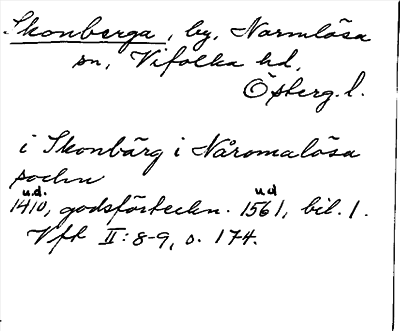 Skonberga, by, Normlösa
sn, Vifolka hd,
Österg. l.
i Skonbärg i Nåromalösa
sochn
u.d. ud
1410, godsförteckn. 1561, bil. 1.
Vfk II:8-9, s. 174.